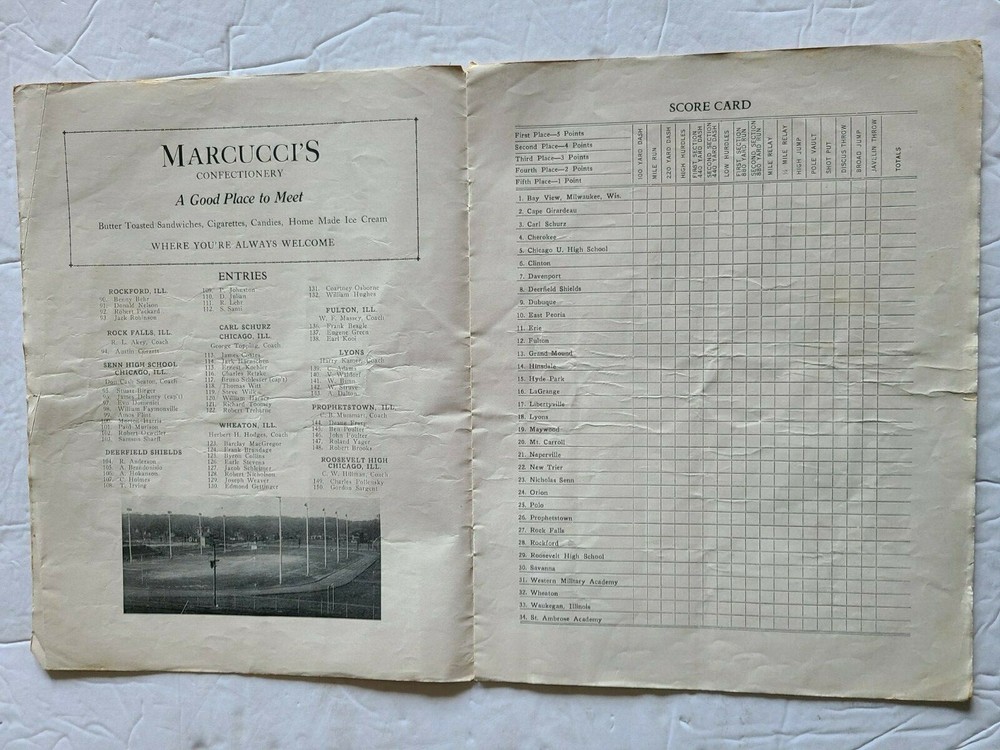 MARCUCCI'S
CONFECTIONERY
A Good Place to Meet
Butter Toasted Sandwiches, Cigarettes, Candies, Home Made Ice Cream
WHERE YOU'RE ALWAYS WELCOME
ENTRIES
ROCKFORD, ILL.
90. Benny Behr
91. Donald Nelson
92. Robert Packard
93. Jack Robinson
ROCK FALLS, ILL.
R. L. Akey, Coach
94. Austin
SENN HIGH SCHOOL
CHICAGO, ILL.
Coach
95. Stuart Berger
96. James Delaney (cap't)
97.
98. William
99.
100. Harris
101. Paul
102. Robert
103. Samson Sharfl
DEERFIELD SHIELDS
104. R. Anderson
105. A.
106. A.
107. Holmes
108. T. Irving
109. P. Johnston
110. D. Julian
111. R. Lehr
112. S. Santi
CARL SCHURZ
CHICAGO, ILL.
George Topping, Coach
113. James
114.
115. Ernest Koehler
116. Charles
117. Bruno Schlesier (cap't)
118. Thomas Witt
119. Steve Wilk
120. William Harris
121. Richard
122. Robert
WHEATON, ILL.
Herbert H. Hodges, Coach
123. Barclay MacGregor
124. Frank Brandage
125. Byron Collins
126. Keith Stevens
127. Jacob
128. Robert Nicholson
129. Joseph Weaver
130. Edmond Gettinger
131. Courtney Osborne
132. William Hughes
FULTON, ILL.
W. F. Massey, Coach
136. Frank Beagle
137. Eugene Green
138. Earl Kooi
LYONS
Harry Kanier, Coach
139. Adams
140. Waldorf
141. W. Bunn
142. W.
143. A. Dalton
PROPHETSTOWN, ILL.
C. B. Mummart, Coach
144. Deane
145. Ben Poulter
146. John Poulter
147. Roland Yager
148. Robert Brooke
ROOSEVELT HIGH
CHICAGO, ILL.
C. W. Hillman, Coach
149. Charles
150. Gordon Sargent
SCORE CARD
First Place—5 Points
Second Place—4 Points
Third Place—3 Points
Fourth Place—2 Points
Fifth Place—1 Point
100 YARD DASH
MILE RUN
220 YARD DASH
HIGH HURDLES
FIRST SECTION
440 YARD DASH
SECOND SECTION
440 YARD DASH
LOW HURDLES
FIRST SECTION
880 YARD RUN
SECOND SECTION
880 YARD RUN
MILE RELAY
½ MILE RELAY
HIGH JUMP
POLE VAULT
SHOT PUT
DISCUS THROW
BROAD JUMP
JAVLIN THROW
TOTALS
1. Bay View, Milwaukee, Wis.
2. Cape Girardeau
3. Carl Schurz
4. Cherokee
5. Chicago U. High School
6. Clinton
7. Davenport
8. Deerfield Shields
9. Dubuque
10. East Peoria
11. Erie
12. Fulton
13. Grand Mound
14. Hinsdale
15. Hyde Park
16. LaGrange
17. Libertyville
18. Lyons
19. Maywood
20. Mt. Carroll
21. Naperville
22. New Trier
23. Nicholas Senn
24. Orion
25. Polo
26. Prophetstown
27. Rock Falls
28. Rockford
29. Roosevelt High School
30. Savanna
31. Western Military Academy
32. Wheaton
33. Waukegan, Illinois
34. St. Ambrose Academy